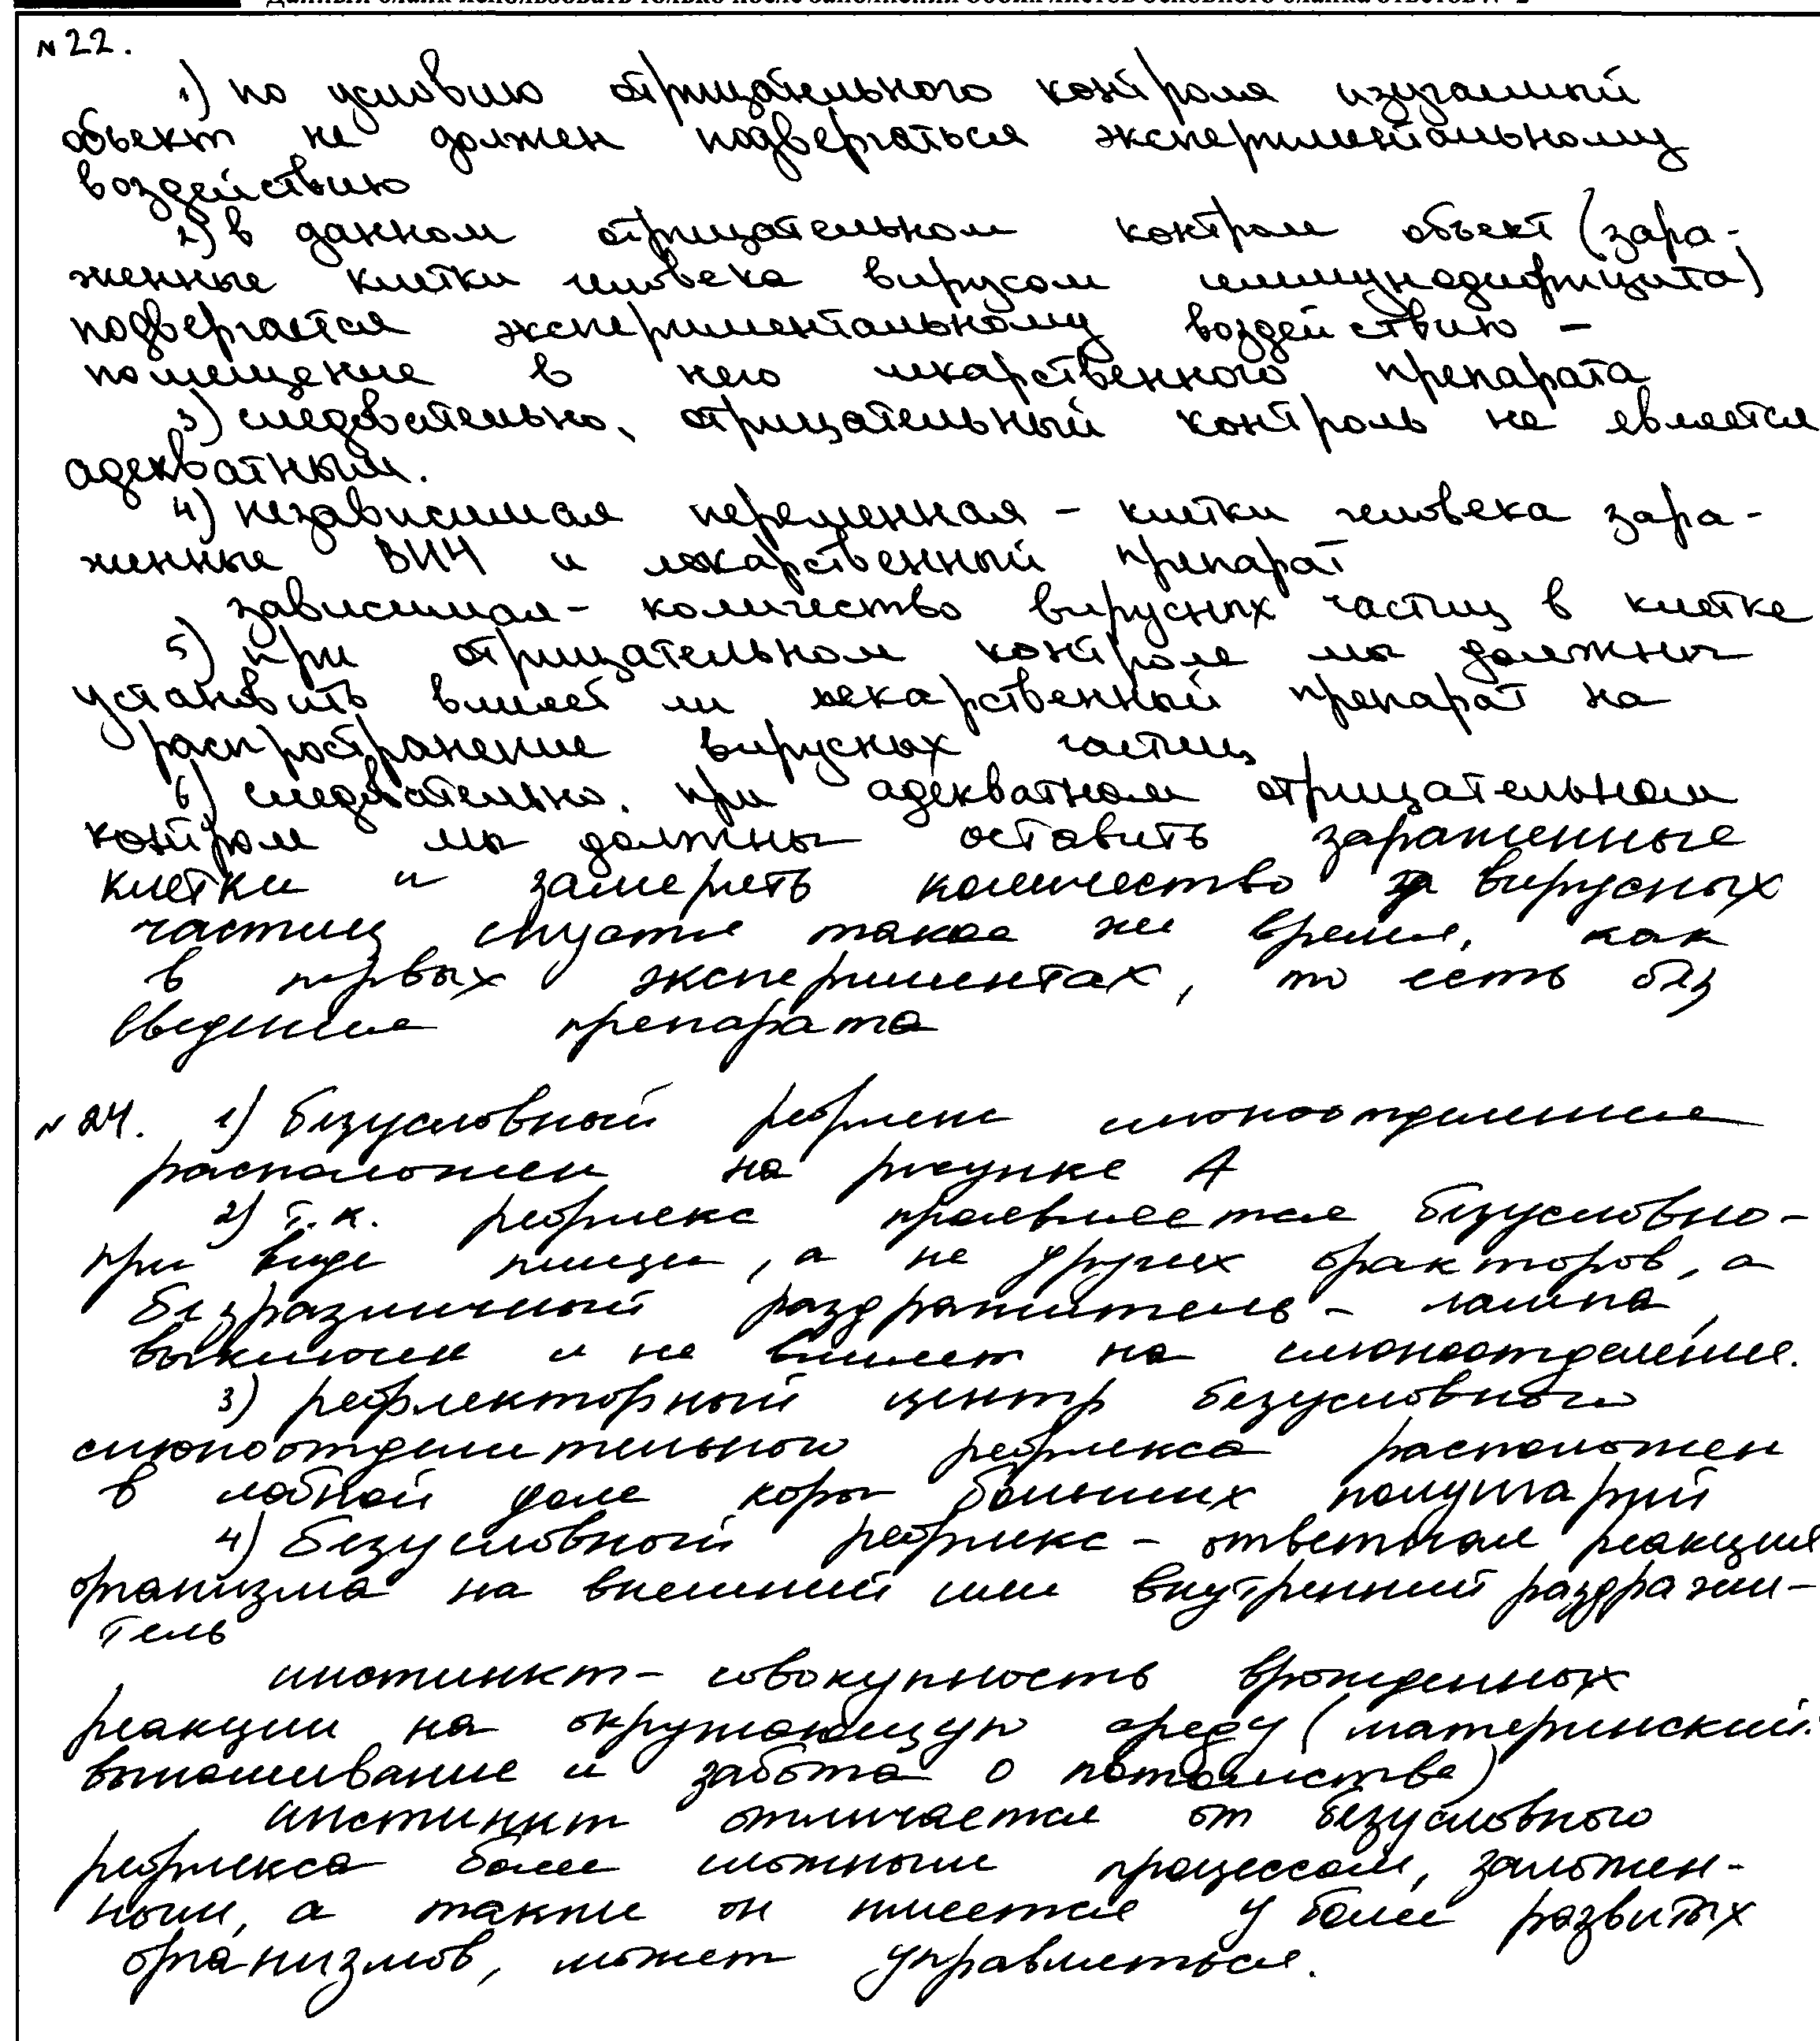 Данный бланк использовать только после заполнения обоих листов основного бланка ответов № 2
№22.
1) по условию отрицательного контроля изучаемый
объект не должен подвергаться экспериментальному
воздействию
2) в данном отрицательном контроле объект (зара-
женные клетки человека вирусом иммунодифицита)
подвергается экспериментальному воздействию -
помещение в него лекарственного препарата
3) следовательно, отрицательный контроль не является
адекватным.
4) независимая переменная - клетки человека зара-
женные ВИЧ и лекарственный препарат
зависимая - количество вирусных частиц в клетке
5) при отрицательном контроле мы должны
установить влияет ли лекарственный препарат на
распространение вирусных частиц
6) следовательно, при адекватном отрицательном
контроле мы должны оставить зараженные
клетки и замерять количество вирусных
частиц спустя такое же время, как
в первых экспериментах, то есть без
введения препарата
№24. 1) безусловный рефлекс слюноотделения
расположен на рисунке А
2) т.к. рефлекс проявляется безусловно -
при виде пищи, а не других факторов, а
безразличный раздражитель - лампа,
выключен и не влияет на слюноотделение.
3) рефлекторный центр безусловного
слюноотделительного рефлекса расположен
в лобной доле коры больших полушарий
4) безусловный рефлекс - ответная реакция
организма на внешний или внутренний раздражи-
тель
инстинкт - совокупность врожденных
реакции на окружающую среду (материнский:
вынашивание и забота о потомстве)
инстинкт отличается от безусловного
рефлекса более сложным процессом, заложен-
ным, а также он имеется у более развитых
организмов, может управляться.